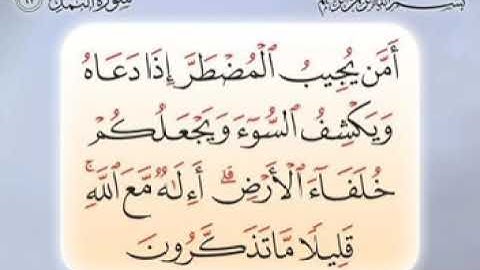 سورة النمل
بسم الله الرحمن الرحيم
أَمَّن يُجِيبُ ٱلْمُضْطَرَّ إِذَا دَعَاهُ
وَيَكْشِفُ ٱلسُّوٓءَ وَيَجْعَلُكُمْ
خُلَفَآءَ ٱلْأَرْضِ ۗ أَءِلَٰهٌ مَّعَ ٱللَّهِ ۚ
قَلِيلًا مَّا تَذَكَّرُونَ